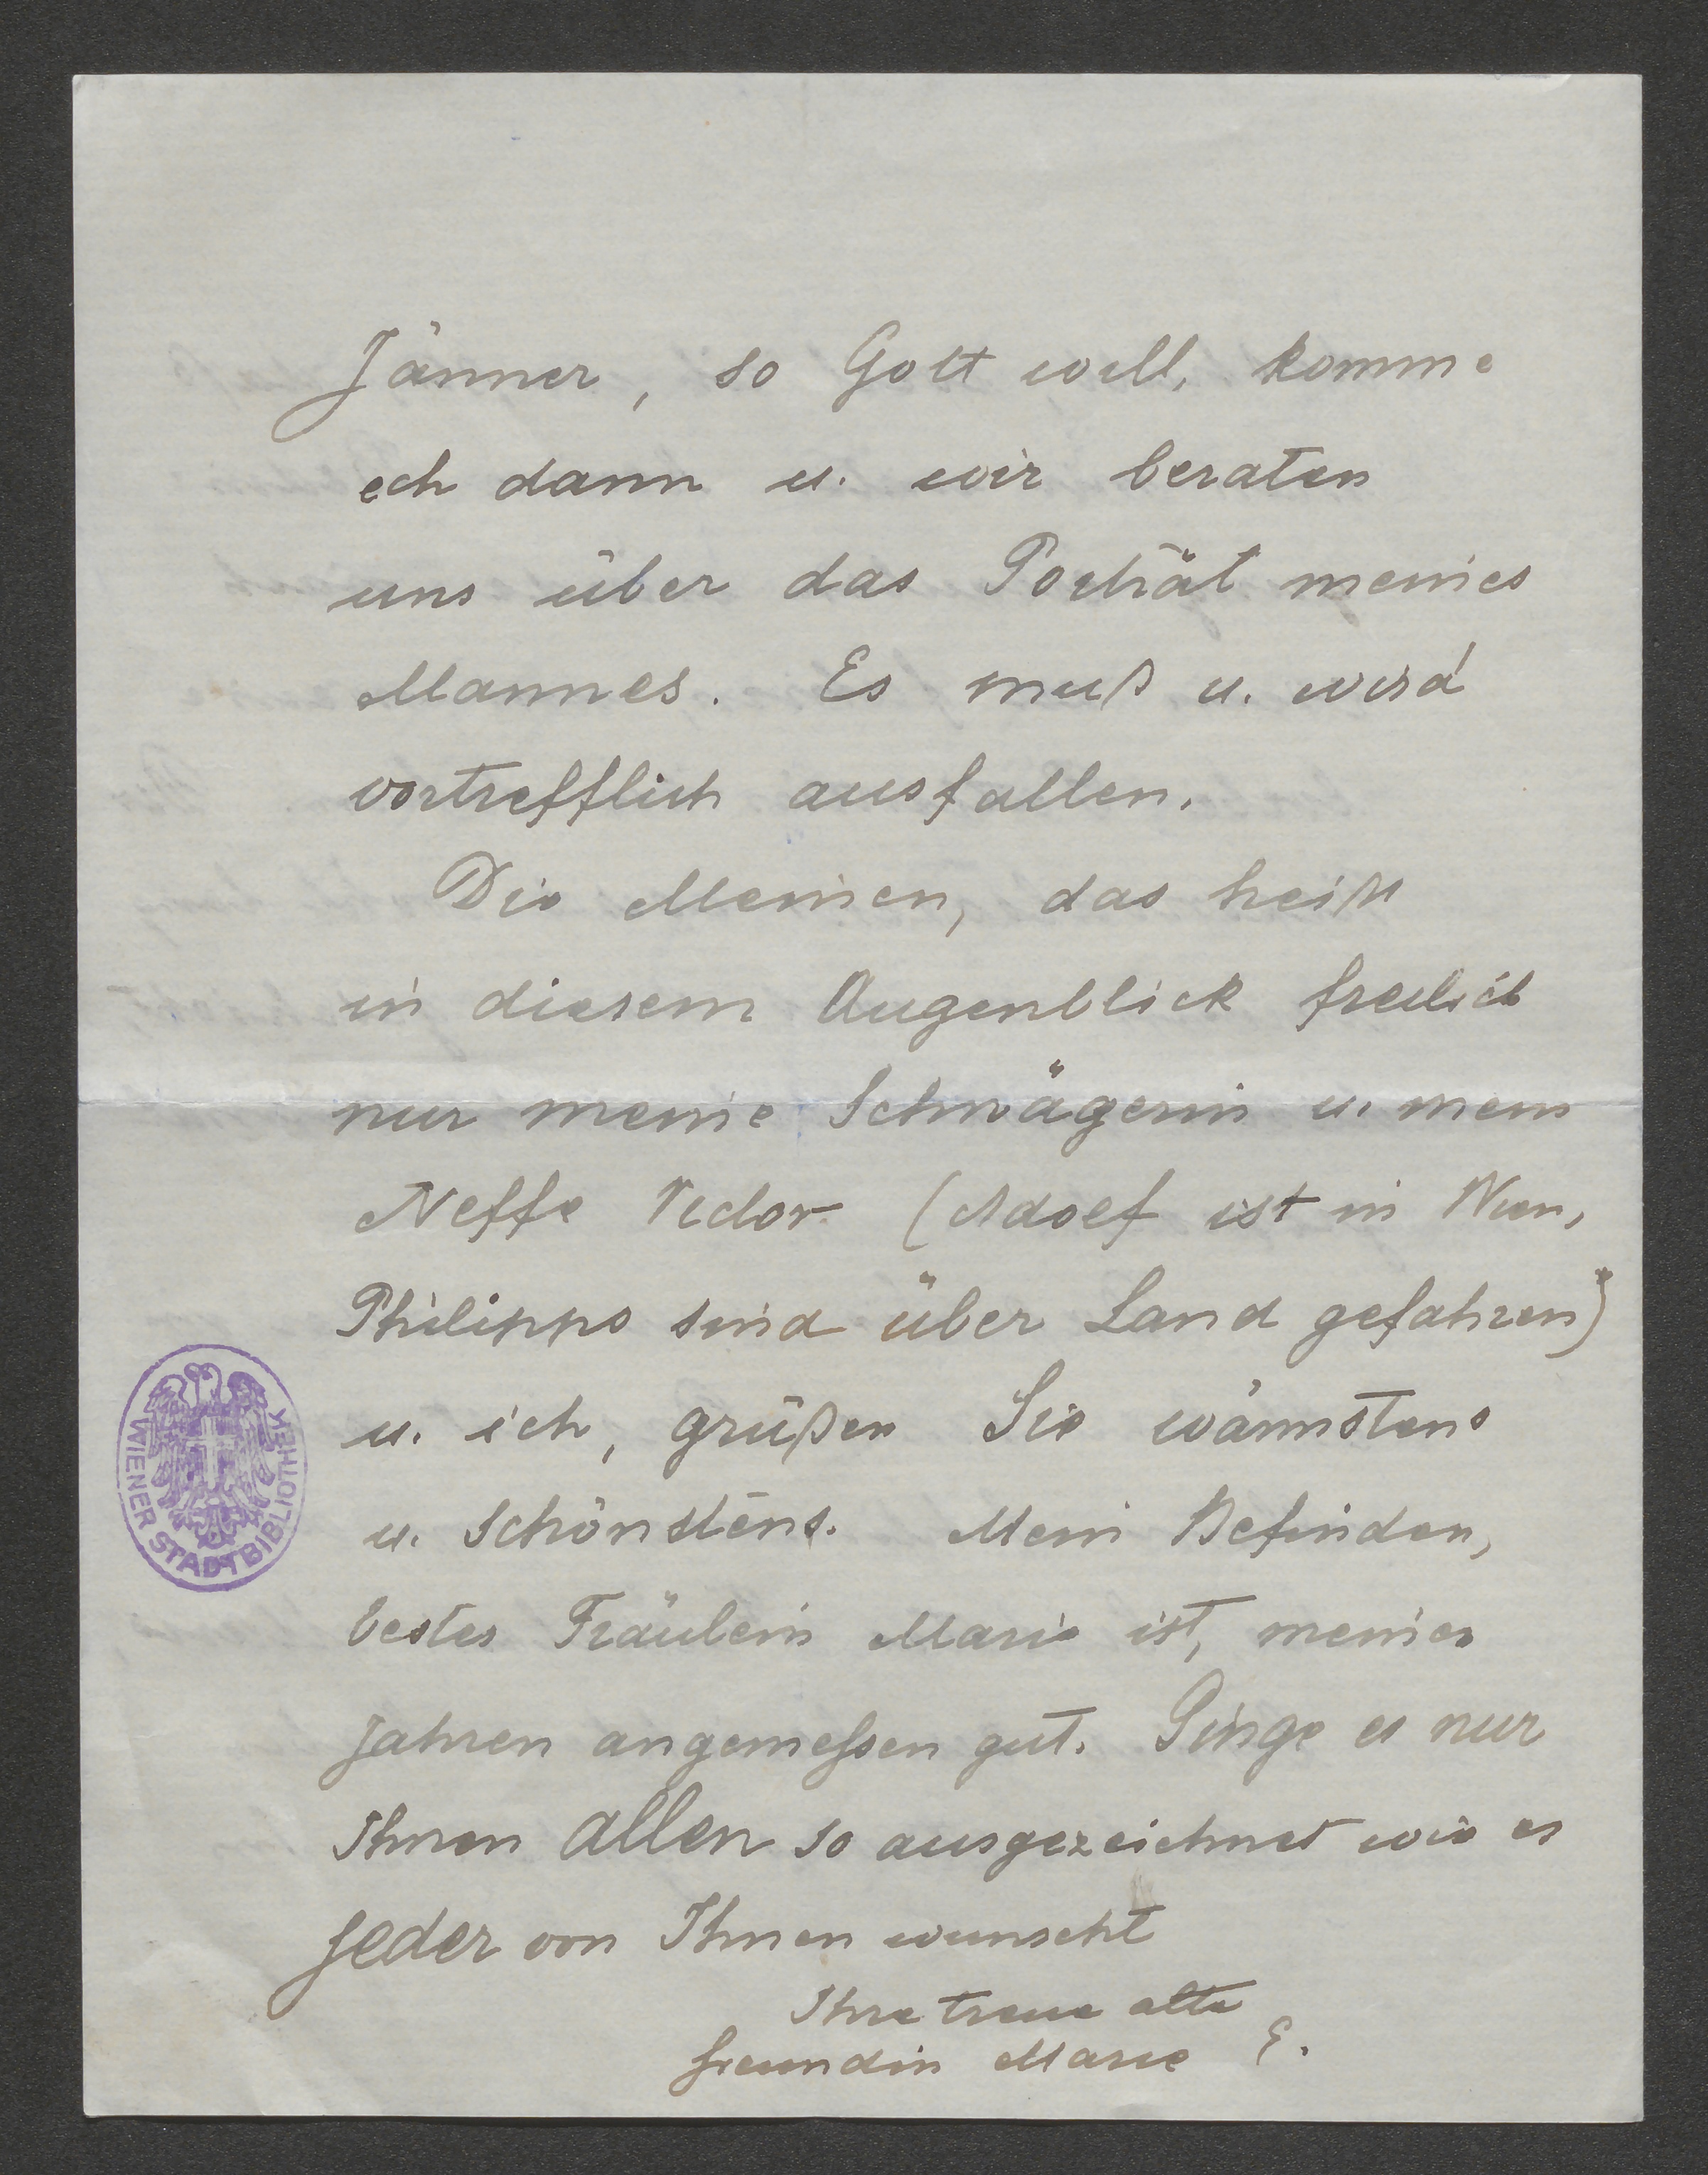 Jänner, so Gott will, komme
ich dann u. wir beraten
uns über das Porträt meines
Mannes. Es muß u. wird
vortrefflich ausfallen.
Die Meinen, das heißt
in diesem Augenblick freilich
nur meine Schwägerin u. mein
Neffe Victor (Adolf ist in Wien,
Philipps sind über Land gefahren)
u. ich, grüßen Sie wärmstens
u. schönstens. Mein Befinden,
bestes Fräulein Marie ist, meinen
Jahren angemessen gut. Ginge es nur
Ihnen allen so ausgezeichnet wie es
Jeder von Ihnen wünscht
Ihre treue alte
Freundin Marie E.
WIENER STADTBIBLIOTHEK